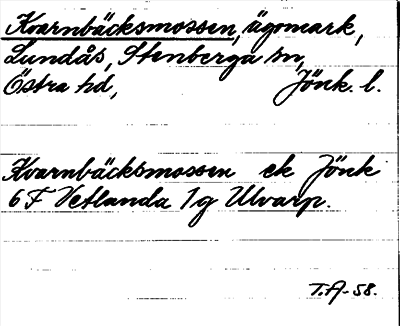 Kvarnbäcksmossen, ägomark,
Lundås, Stenberga sn,
Östra hd, Jönk. l.
Kvarnbäcksmossen ek Jönk
6 F Vetlanda 1g Ulvarp.
T.A-58.